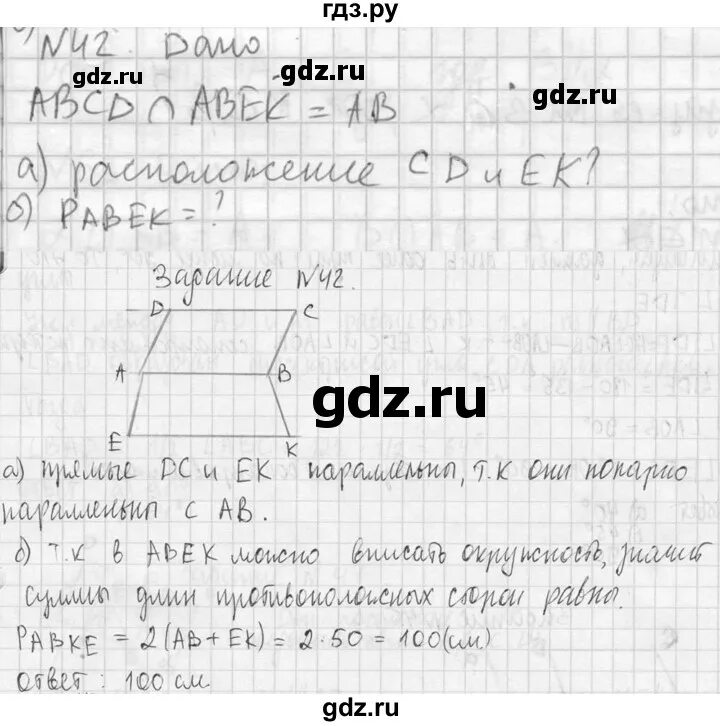 гдз.ру
N42. Дано
gdz.ru gdz.ru gdz.ru
ABCD ∩ ABEK = AB
а) расположение CD и EK?
gdz.ru
б) PABEK = ?
Задание N42.
D C
A B
gdz.ru
E K
а) прямые DC и EK параллельны, т.к они попарно
параллельны с AB.
gdz.ru
б) т.к в ABEK можно вписать окружность, значит
суммы длин противоположных сторон равны.
PABKE = 2(AB + EK) = 2·50 = 100(см)
gdz.ru gdz.ru
ответ: 100 см.
gdz.ru